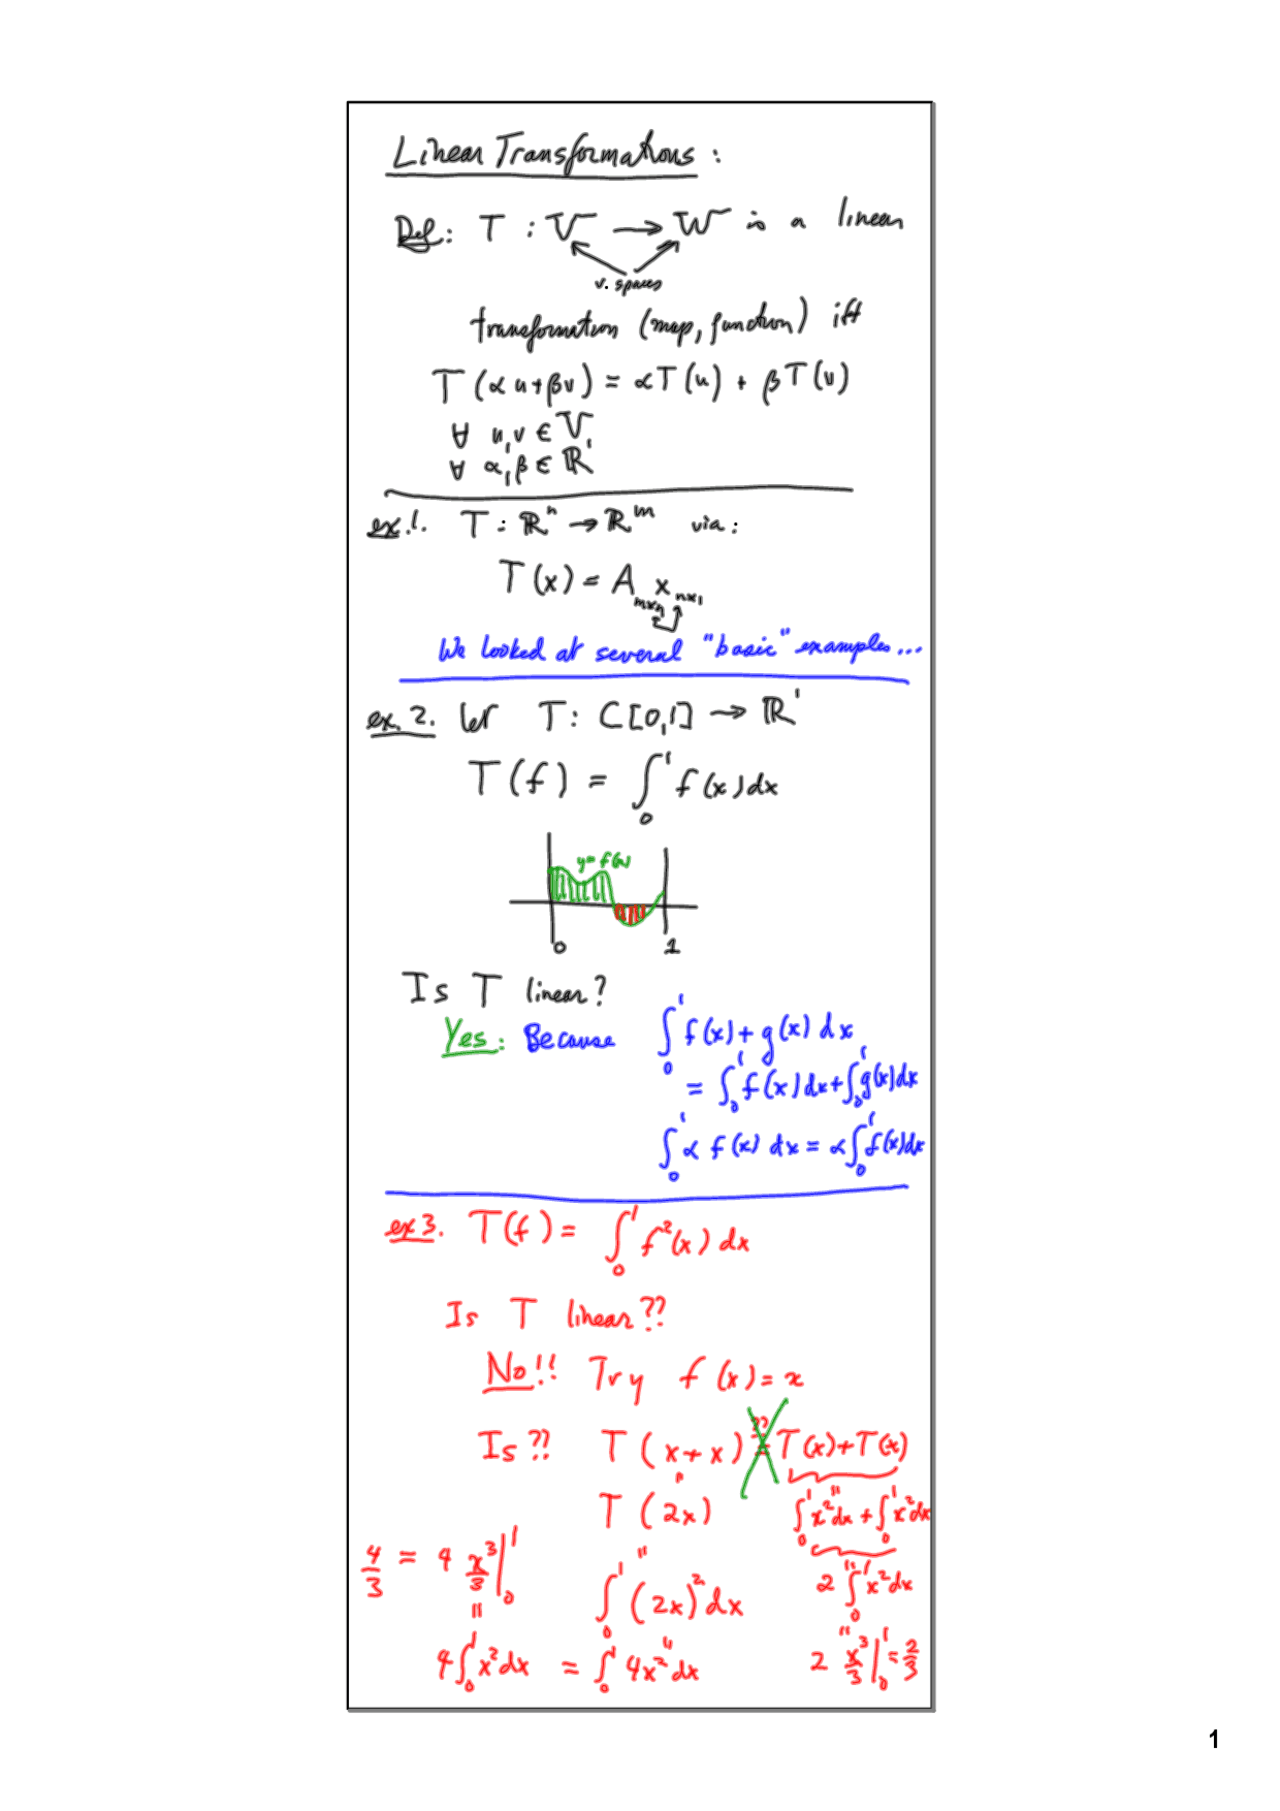 Linear Transformations :
Def: T : V → W is a linear
v. spaces
transformation (map, function) iff
T(αu+βv) = αT(u) + βT(v)
∀ u,v ∈ V
∀ α,β ∈ ℝ¹
ex.1. T : ℝⁿ → ℝᵐ via :
T(x) = A x
mxn nx1
We looked at several "basic" examples...
ex. 2. Let T : C[0,1] → ℝ¹
T(f) = ∫₀¹ f(x)dx
y=f(x)
0 1
Is T linear?
Yes: Because ∫₀¹ f(x)+g(x) dx
= ∫₀¹ f(x)dx+∫₀¹ g(x)dx
∫₀¹ α f(x) dx = α∫₀¹ f(x)dx
ex 3. T(f) = ∫₀¹ f²(x) dx
Is T linear??
No!! Try f(x)=x
Is ?? T(x+x) ≟?? T(x)+T(x)
T(2x) ∫₀¹ x²dx + ∫₀¹ x²dx
4/3 = 4 x³/3 |₀¹ ∫₀¹ (2x)²dx 2 ∫₀¹ x²dx
4∫₀¹ x²dx = ∫₀¹ 4x²dx 2 x³/3 |₀¹ = 2/3
1